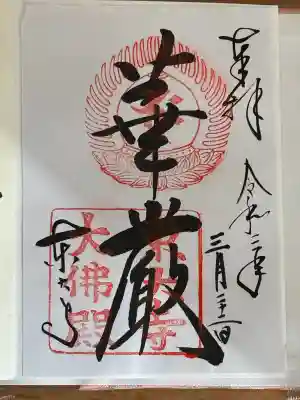 奉拝
令和二年
三月二十一日
華厳
東大寺
東大寺
大佛殿